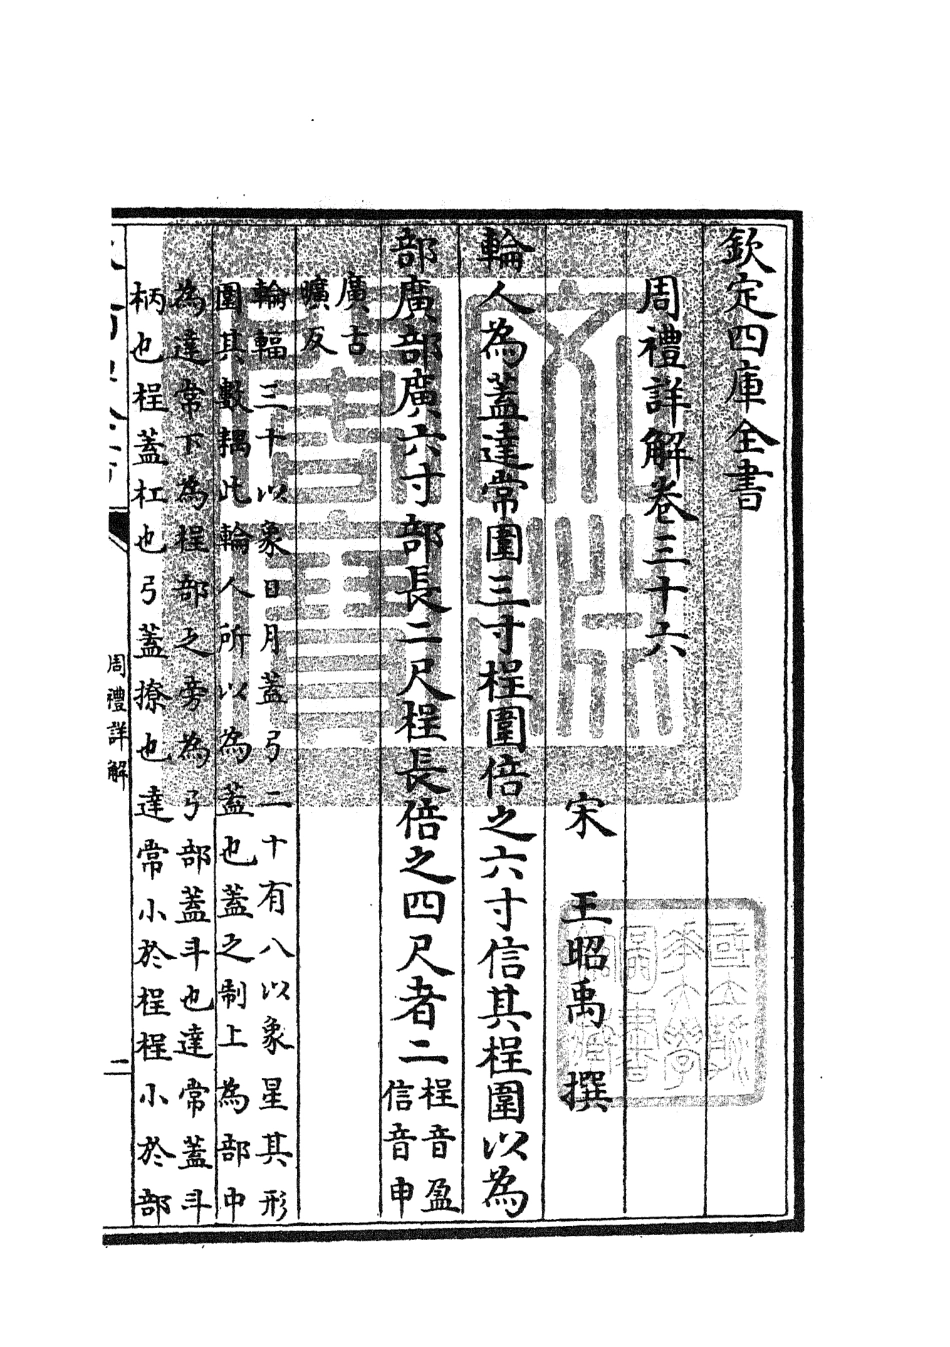 欽定四庫全書
周禮詳解卷三十六
宋　王昭禹　撰
輪人為蓋達常圍三寸桯圍倍之六寸信其桯圍以為
部廣部廣六寸部長二尺桯長倍之四尺者二桯音盈
信音申
廣古
曠反
輪輻三十以象日月蓋弓二十有八以象星其形
圍其數耦此輪人所以為蓋也蓋之制上為部中
為達常下為桯部之旁為弓部蓋斗也達常蓋斗
柄也桯蓋杠也弓蓋橑也達常小於桯桯小於部
周禮詳解
二